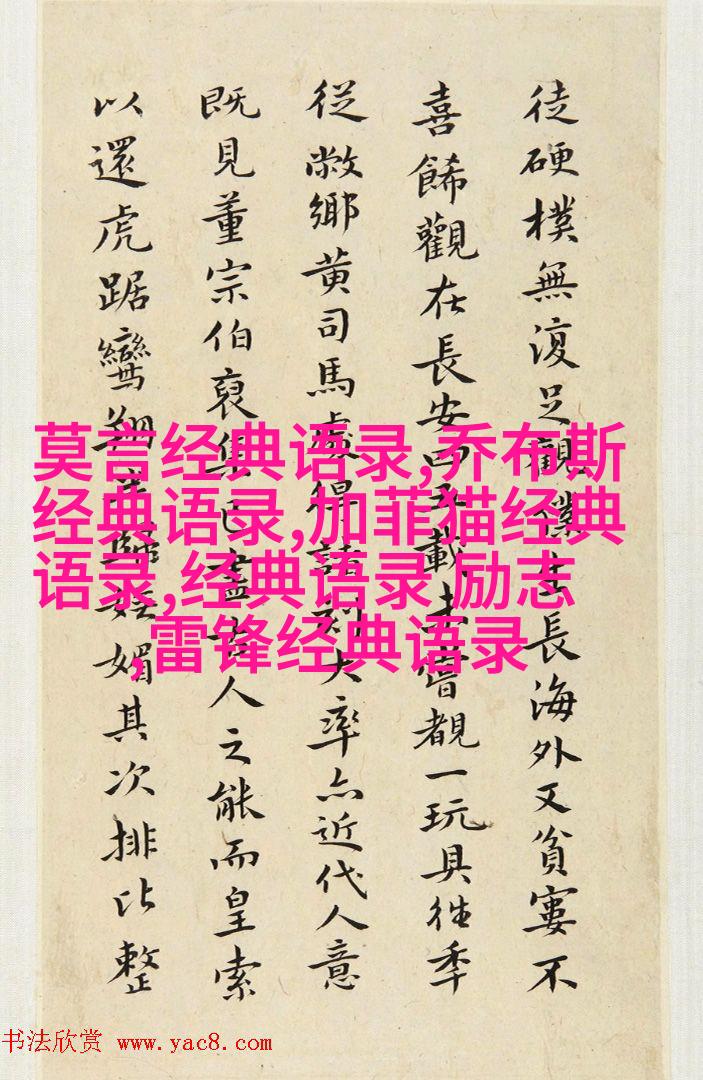 徒硬樸無復足觀僕生長海外又貧窶不
喜餙觀在長安四五載未嘗覩一玩具往季
從敝鄉黃司馬處得諸刻大率亦近代人意
既見董宗伯裒集已盡古人之能而皇索
以還虎踞鸞翔 媚其次排比整
莫言经典语录,乔布斯
经典语录,加菲猫经典
语录,经典语录 励志
,雷锋经典语录
书法欣赏 www.yac8.com